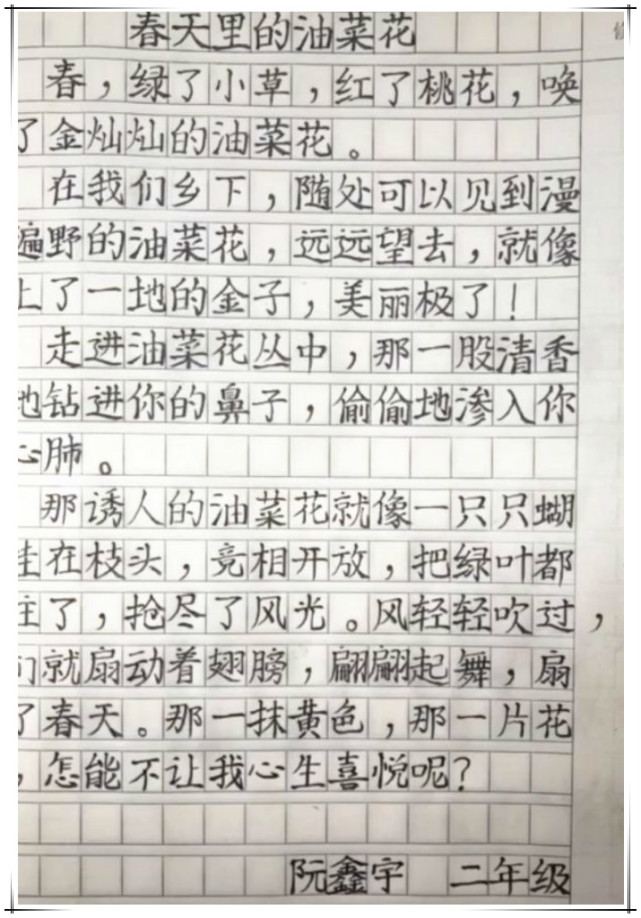 春天里的油菜花
春，绿了小草，红了桃花，唤
了金灿灿的油菜花。
在我们乡下，随处可以见到漫
遍野的油菜花，远远望去，就像
上了一地的金子，美丽极了！
走进油菜花丛中，那一股清香
地钻进你的鼻子，偷偷地渗入你
心肺。
那诱人的油菜花就像一只只蝴
在枝头，竞相开放，把绿叶都
住了，抢尽了风光。风轻轻吹过，
们就扇动着翅膀，翩翩起舞，扇
了春天。那一抹黄色，那一片花
，怎能不让我心生喜悦呢？
阮鑫宇 二年级